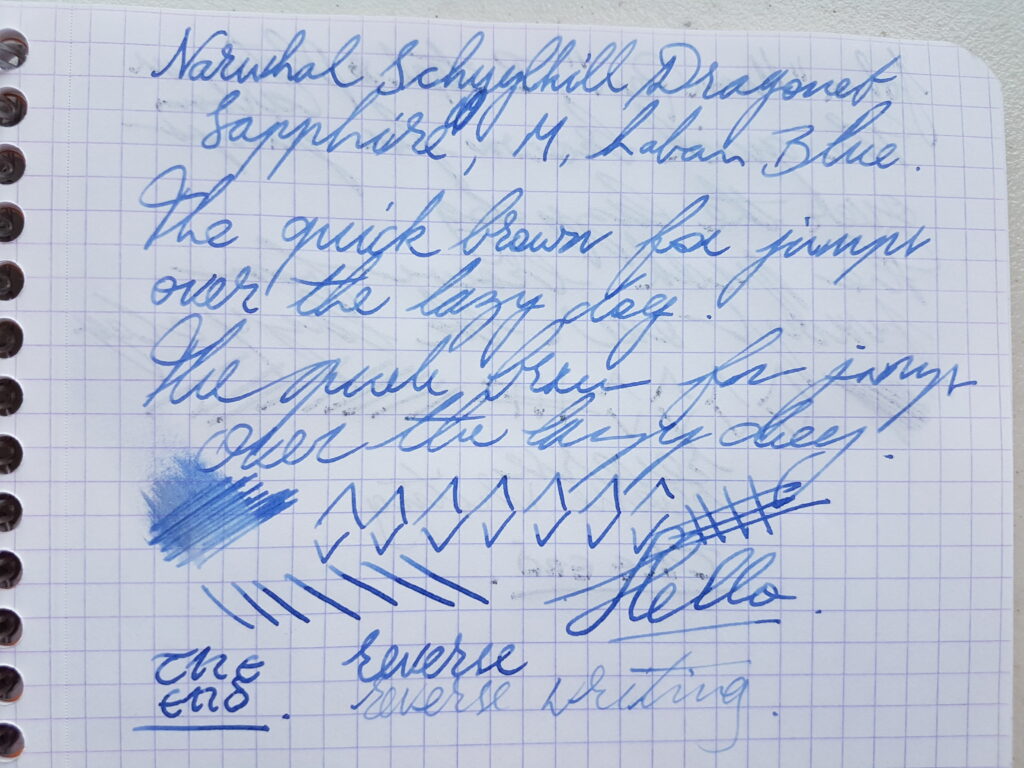 Narwhal Schuylkill Dragonet
Sapphire, M, Laban Blue.
The quick brown fox jumps
over the lazy dog.
The quick brown fox jumps
over the lazy dog.
Hello.
THE reverse
END. reverse writing.